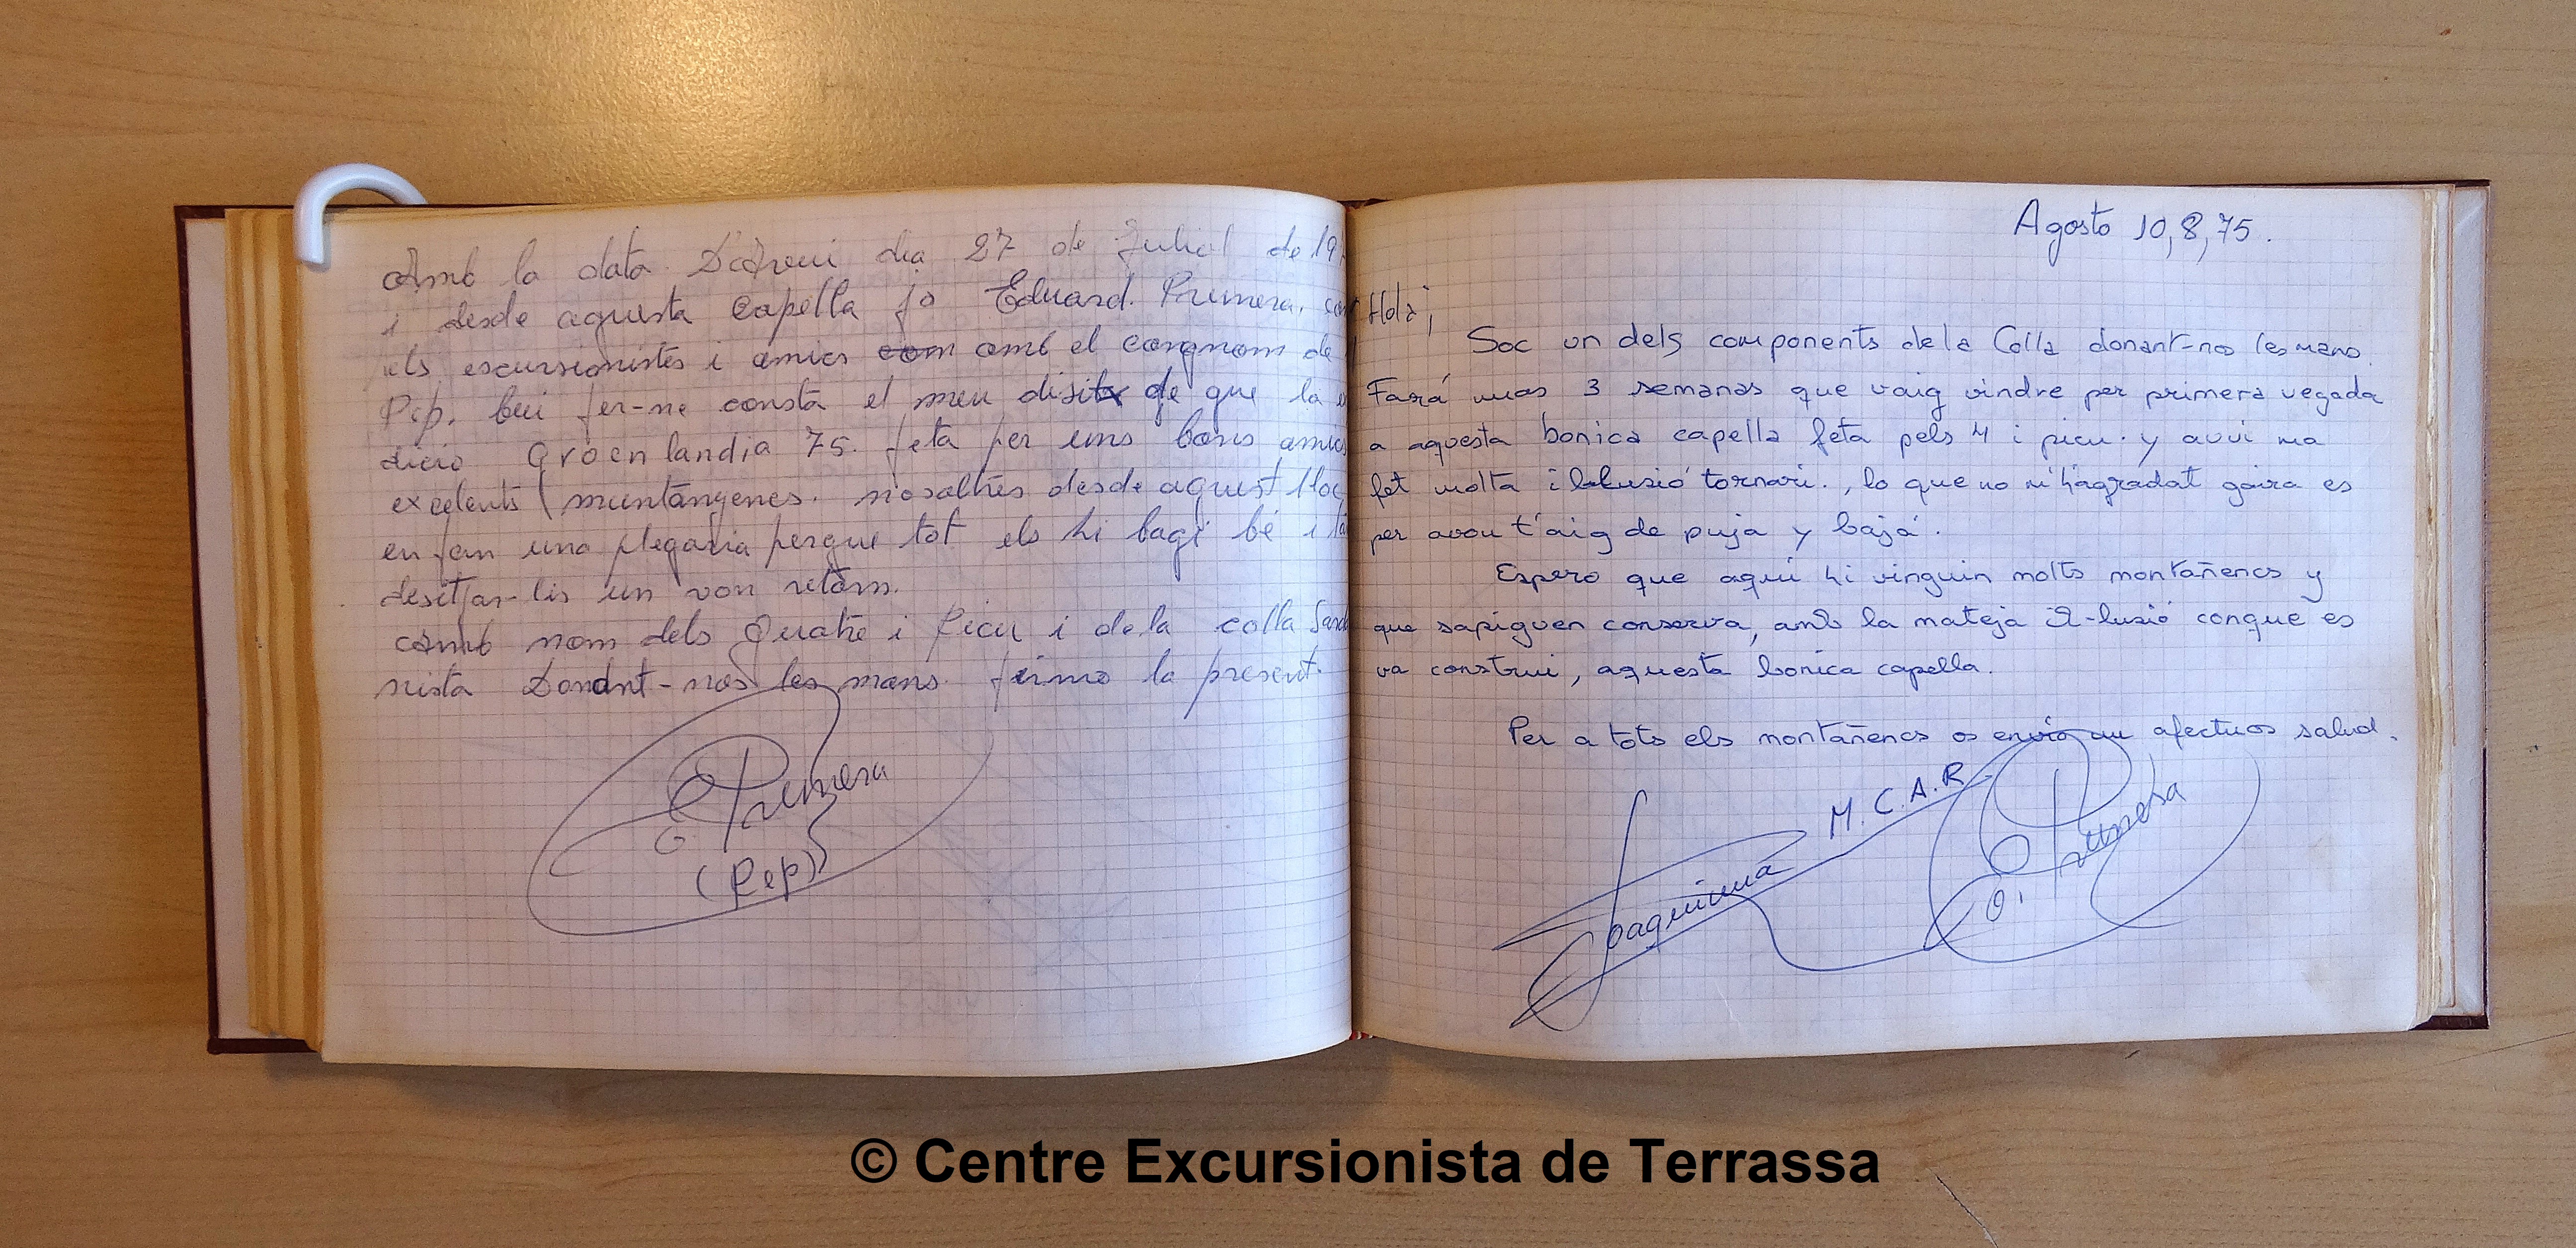 Amb la data D'Avui dia 27 de Juliol de 19
i desde aquesta Capella jo Eduard. Primera.
els escursionistes i amics com amb el congnom de
Pep. bui fer-ne consta el meu disitx de que la
dicio Gròenlandia 75. feta per uns bons amics
excelents muntanyenes. nosaltres desde aquest lloc
en fem una plegaria perque tot els hi bagi bé i
desitjar-lis un von retorn.
Amb nom dels Quatre i Picu i de la colla Sard
nista Donant-nos les mans. firmo la present.
E Primera
(Pep)
Agosto 10,8,75.
Hola;
Soc un dels components de la Colla donant-nos les mans.
Fará unas 3 semanas que vaig vindre per primera vegada
a aquesta bonica capella feta pels 4 i picu. y avui ma
fet molta ilusió tornari., lo que no m'hagradat gaira es
per avon t'aig de puja y bajá.
Espero que aquí hi vinguin molts montañencs y
que sapiguen conserva, amb la mateja il-lusió conque es
va construi, aquesta bonica capella.
Per a tots els montañencs os envio un afectuos salud.
Joaquima M.C.A.R.
O. Primera
© Centre Excursionista de Terrassa